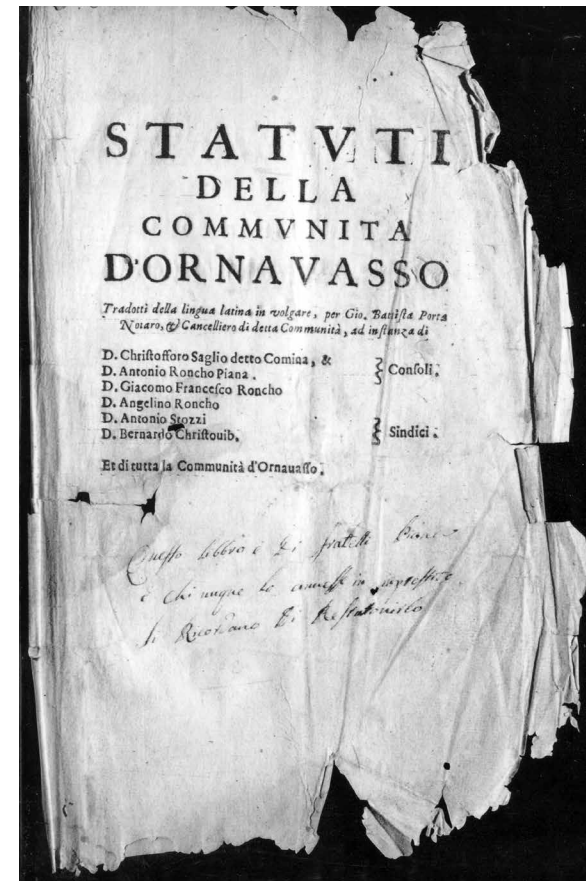 STATVTI
DELLA
COMMVNITA
D'ORNAVASSO
Tradotti della lingua latina in volgare, per Gio. Battista Porta
Notaro, & Cancelliero di detta Communità, ad instanza di
D. Christofforo Saglio detto Comina, &
D. Antonio Roncho Piana. Consoli.
D. Giacomo Francesco Roncho
D. Angelino Roncho
D. Antonio Stozzi
D. Bernardo Christouib. Sindici.
Et di tutta la Communità d'Ornauasso.
Questo libbro è di fratelli
e chi unque lo avesse in
di